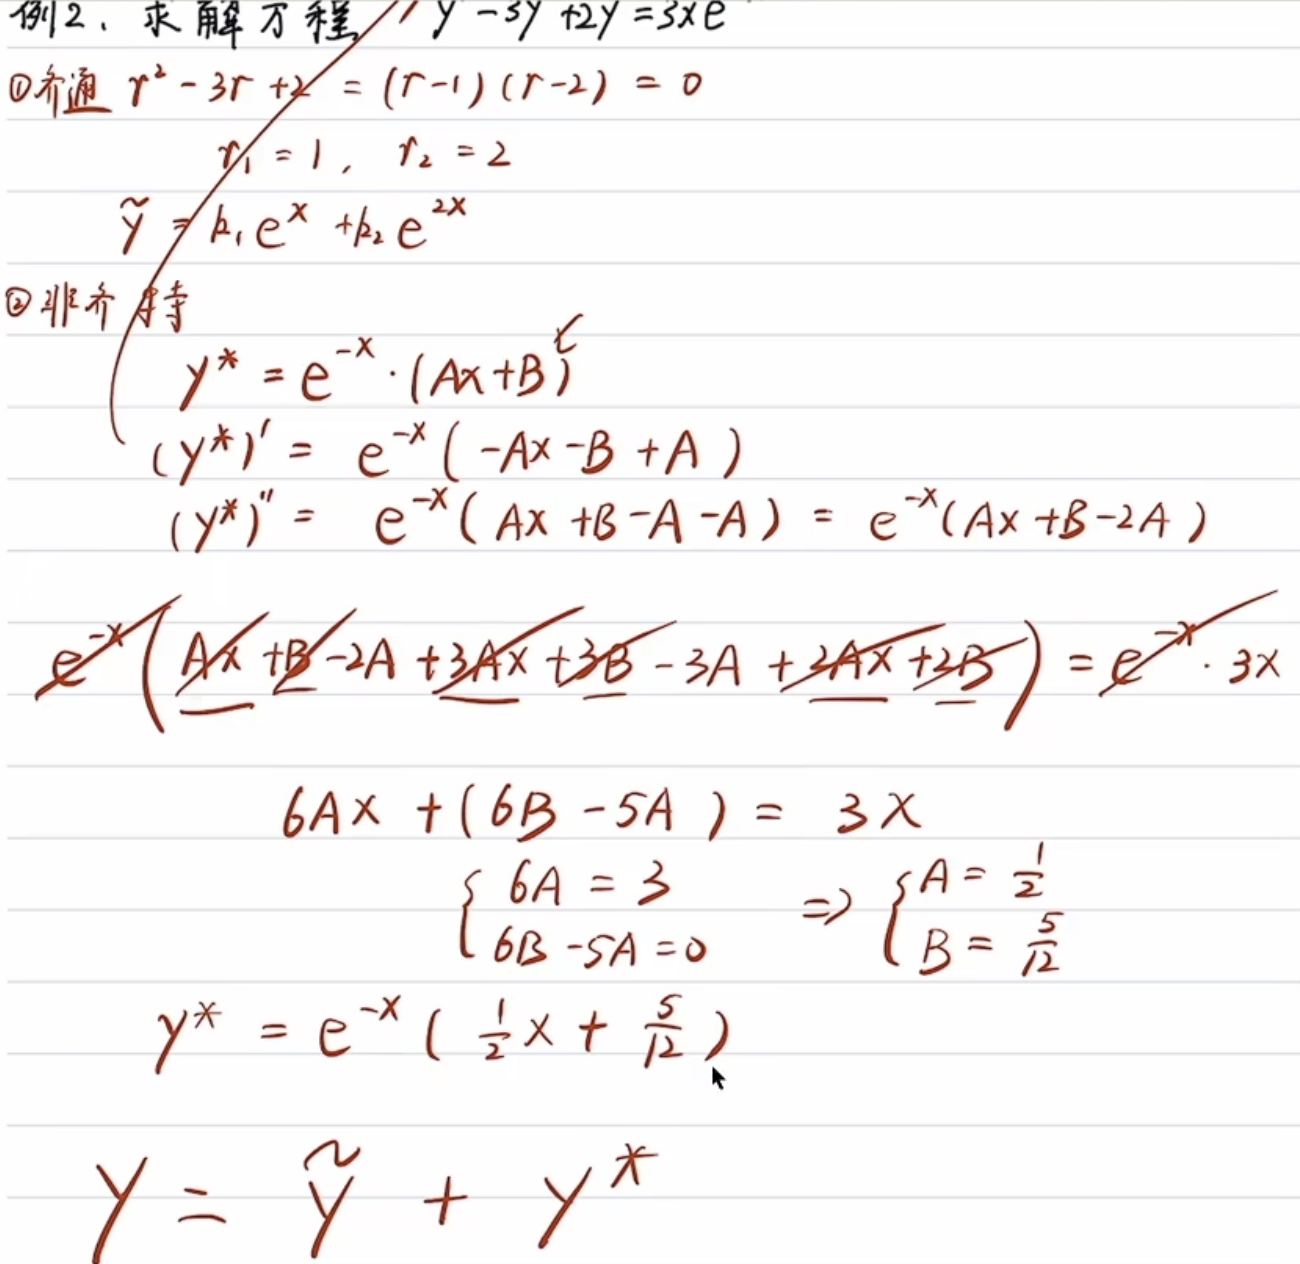 例2. 求解方程 y''-3y'+2y=3xe
①齐通 r²-3r+2 = (r-1)(r-2) = 0
r₁ = 1, r₂ = 2
ỹ = k₁eˣ + k₂e²ˣ
②非齐 特
y* = e⁻ˣ·(Ax+B)
(y*)' = e⁻ˣ(-Ax-B+A)
(y*)'' = e⁻ˣ(Ax+B-A-A) = e⁻ˣ(Ax+B-2A)
e⁻ˣ(Ax+B-2A+3Ax+3B-3A+2Ax+2B) = e⁻ˣ·3x
6Ax+(6B-5A) = 3x
{ 6A = 3 ⇒ { A = 1/2
6B-5A=0 B = 5/12
y* = e⁻ˣ(1/2x+5/12)
y = ỹ + y*